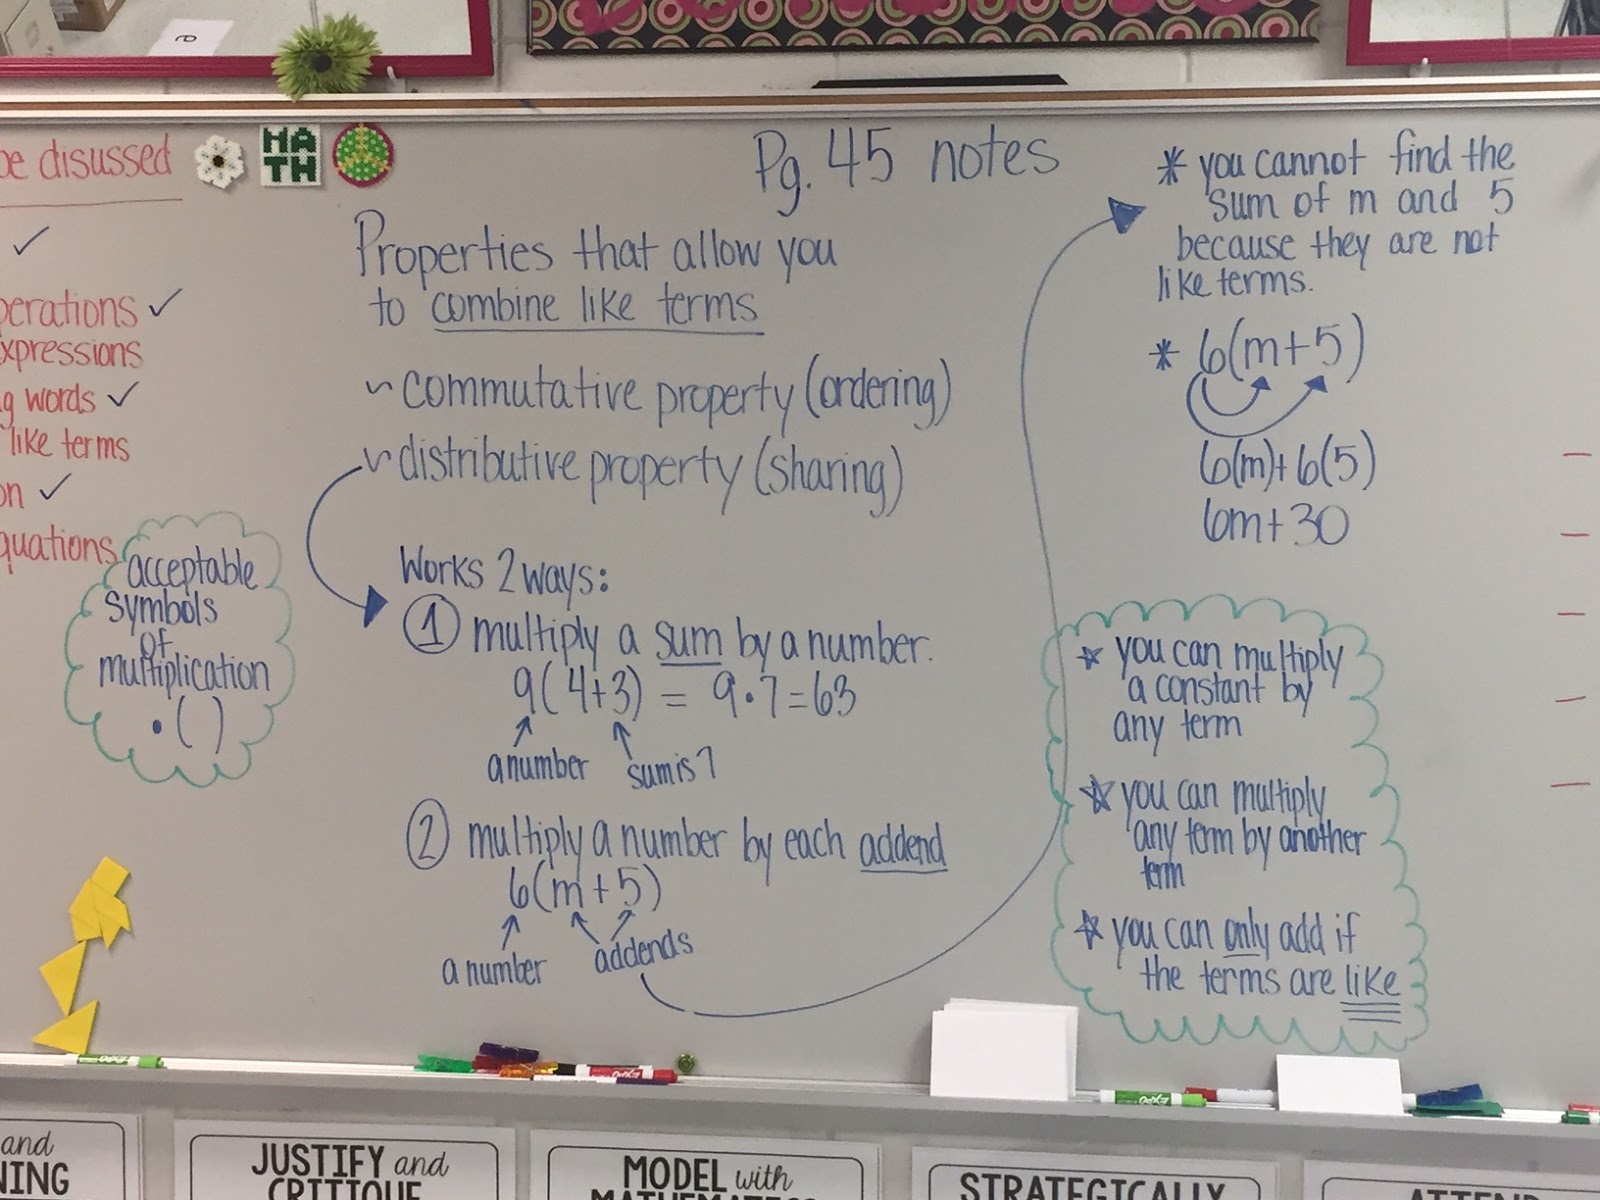 be disussed
✓
perations ✓
xpressions
g words ✓
like terms
on ✓
quations
MA
TH
acceptable
symbols
of
multiplication
• ( )
Pg. 45 notes
Properties that allow you
to combine like terms
commutative property (ordering)
distributive property (sharing)
Works 2 ways:
① multiply a sum by a number.
9(4+3) = 9•7=63
a number sum is 7
② multiply a number by each addend
6(m+5)
a number addends
* you cannot find the
sum of m and 5
because they are not
like terms.
* 6(m+5)
6(m)+6(5)
6m+30
☆ you can multiply
a constant by
any term
☆ you can multiply
any term by another
term
☆ you can only add if
the terms are like
and
NING
JUSTIFY and
CRITIQUE
MODEL with
MATHEMATICS
STRATEGICALLY
ATTEND
EXPO
EXPO
EXPO